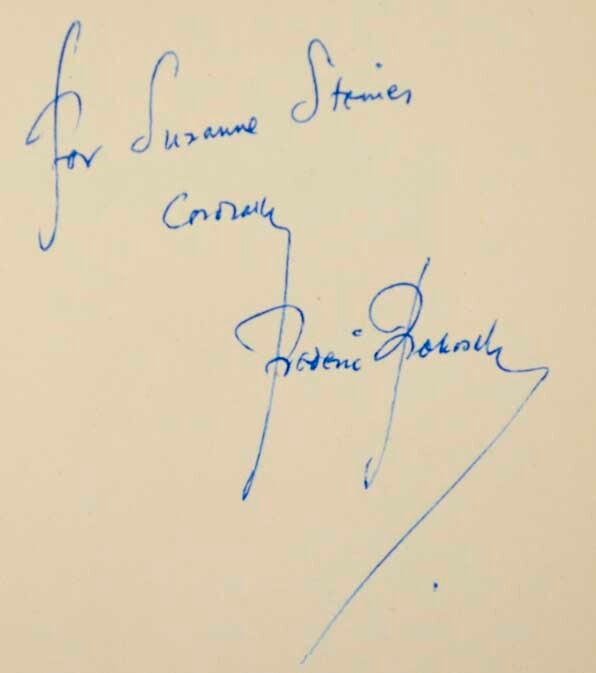 For Suzanne
Cordially
Frederic Prokosch